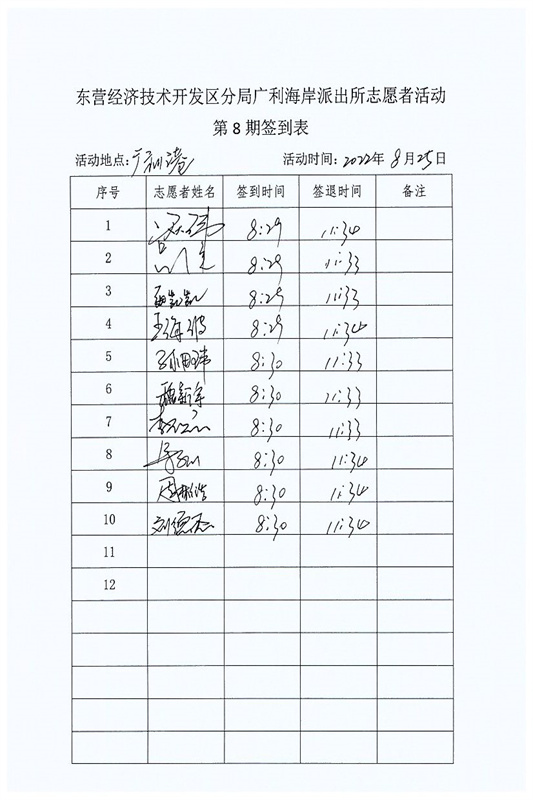 东营经济技术开发区分局广利海岸派出所志愿者活动
第8期签到表
活动地点：广利港 活动时间：2022年8月25日
序号 志愿者姓名 签到时间 签退时间 备注
1 8:29 11:34
2 8:29 11:33
3 8:29 11:33
4 王海波 8:29 11:34
5 8:30 11:33
6 8:30 11:33
7 8:30 11:33
8 8:30 11:34
9 周彬浩 8:30 11:34
10 刘德杰 8:30 11:34
11
12